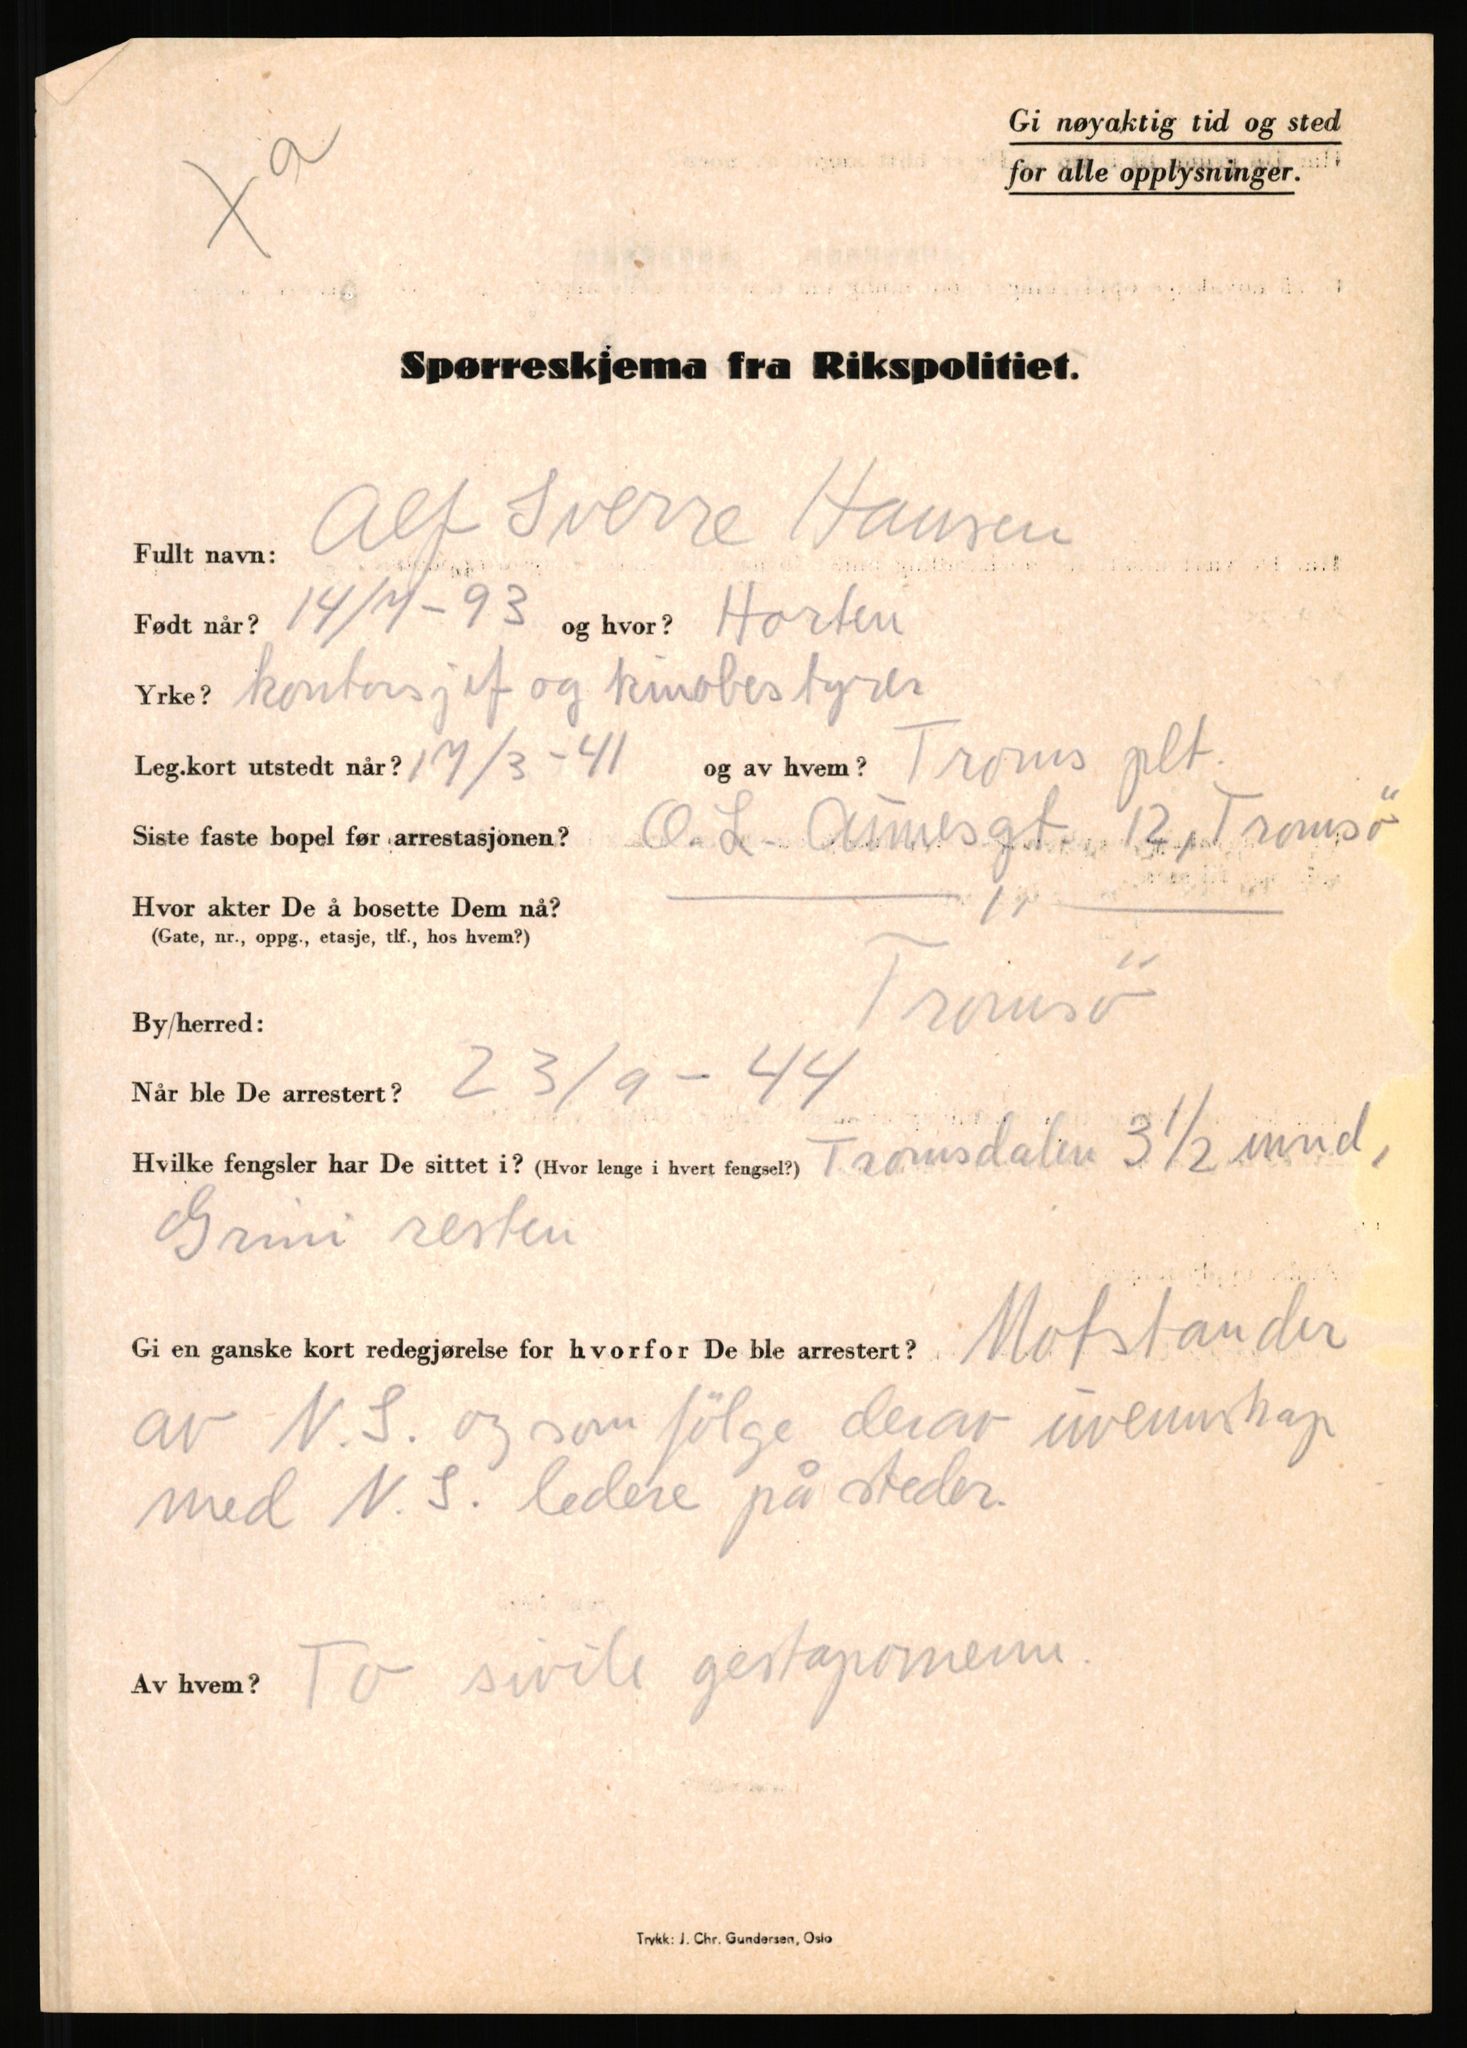 Xa
Gi nøyaktig tid og sted
for alle opplysninger.
Spørreskjema fra Rikspolitiet.
Fullt navn: Alf Sverre Hansen
Født når? 14/7-93 og hvor? Horten
Yrke? kontorsjef og kinobestyrer
Leg.kort utstedt når? 17/3-41 og av hvem? Troms plt.
Siste faste bopel før arrestasjonen? O. L. Aunesgt. 12, Tromsö
Hvor akter De å bosette Dem nå? — " —
(Gate, nr., oppg., etasje, tlf., hos hvem?)
By/herred: Tromsö
Når ble De arrestert? 23/9-44
Hvilke fengsler har De sittet i? (Hvor lenge i hvert fengsel?) Tromsdalen 3 1/2 mnd,
Grini resten
Gi en ganske kort redegjørelse for hvorfor De ble arrestert? Motstander
av N.S. og som fölge derav uvennskap
med N.S. ledere på steder.
Av hvem? To sivile gestapomenn.
Trykk: J. Chr. Gundersen, Oslo